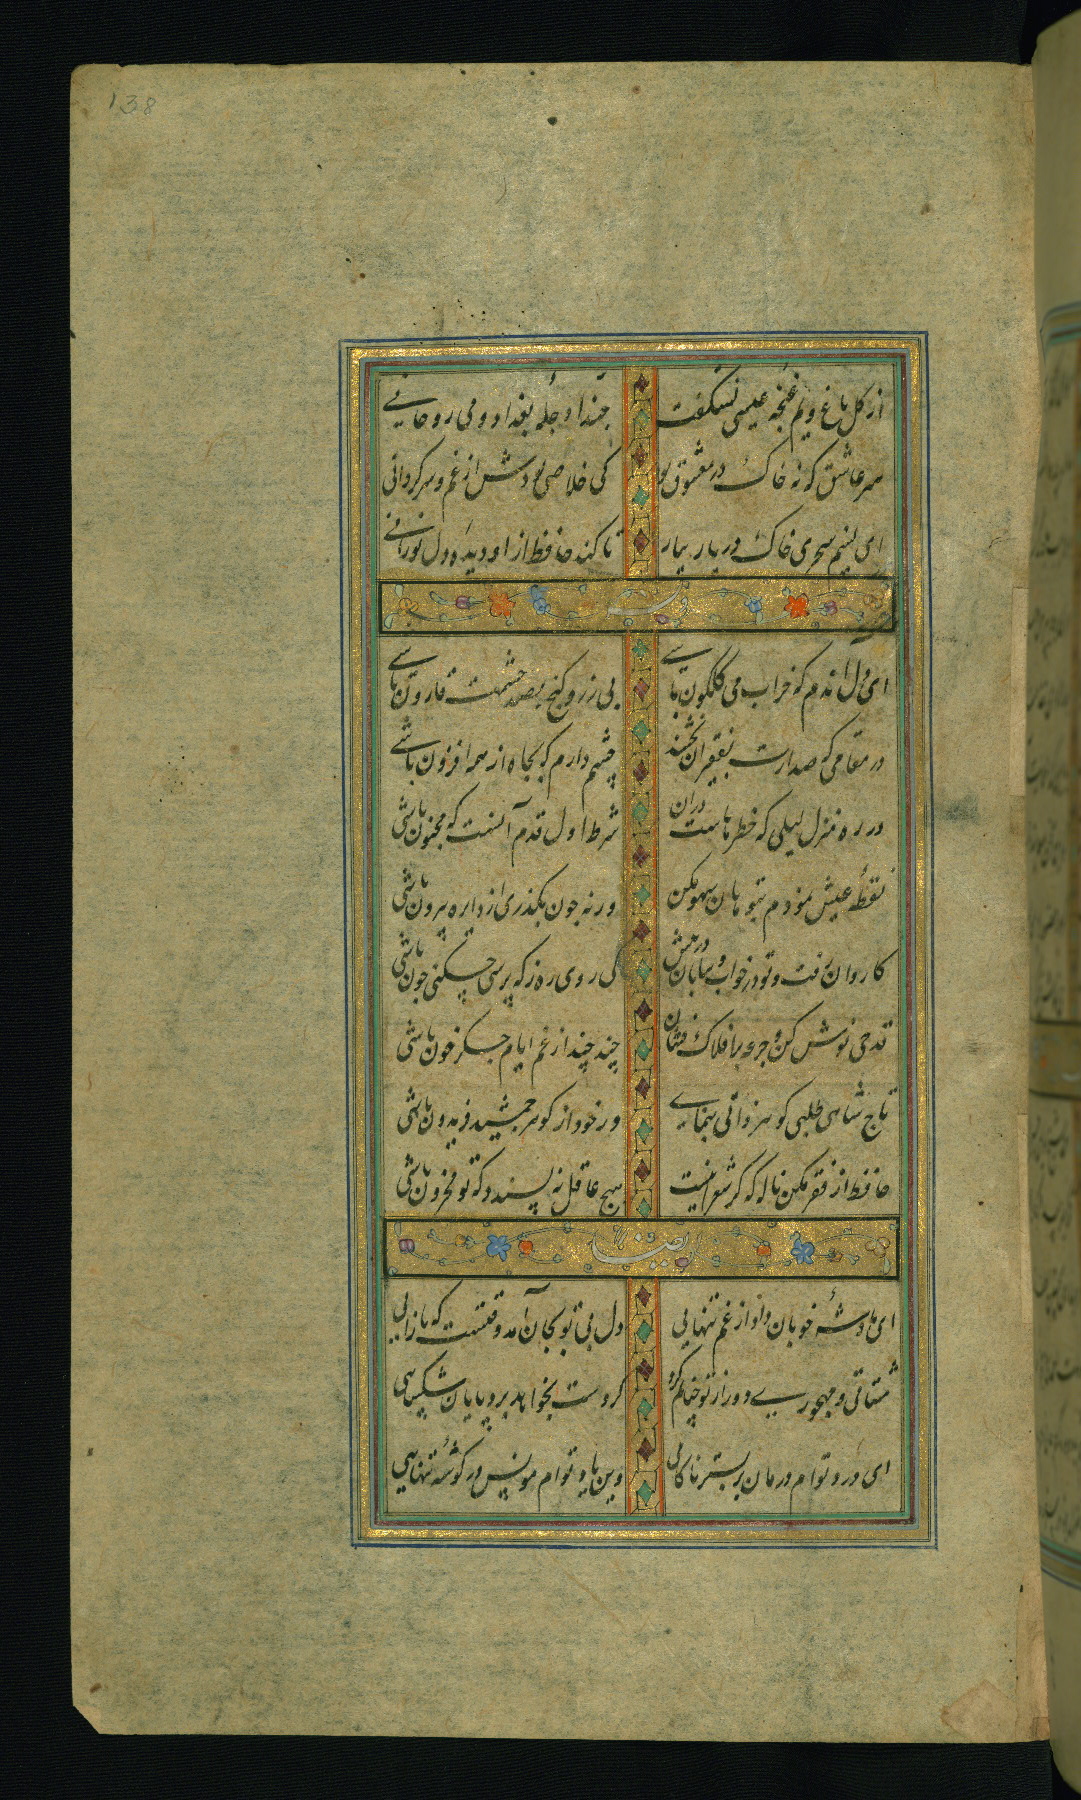 138
از گل باغ ویم غنچه عیسی نشکفت
حبذا دجلهٔ بغداد و می روحانی
سر عاشق که نه خاک در معشوق بو
کی خلاصی بودش از غم و سرکردانی
ای نسیم سحری خاک در یار بیار
تا کند حافظ از او دیدهٔ دل نورانی
ای دل اندم که خراب می گلگون باشی
بی زر و گنج بصد حشمت قارون باشی
در مقامی که صدارت بفقیران بخشند
چشم دارم که بجاه از همه افزون باشی
در ره منزل لیلی که خطرهاست دران
شرط اول قدم آنست که مجنون باشی
نقطهٔ عیش نمودم بتو هان سهو مکن
ورنه چون بگذری از دایره بیرون باشی
کاروان رفت و تو در خواب و بیابان در پیش
کی روی ره ز که پرسی چکنی چون باشی
قدحی نوش کن و جرعه بر افلاک فشان
چند چند از غم ایام جگر خون باشی
تاج شاهی طلبی گوهر ذاتی بنمای
ور خود از گوهر جمشید و فریدون باشی
حافظ از فقر مکن ناله که گر شعر اینست
هیچ عاقل نه پسندد که تو محزون باشی
ایضا
ای پادشه خوبان داد از غم تنهایی
دل بی تو بجان آمد وقتست که بازایی
مشتاقی و مهجوری دور از تو چنانم کرد
کز دست بخواهد برد پایان شکیبایی
ای درد توام درمان بر بستر ناکامی
وین یاد توام مونس در گوشهٔ تنهایی